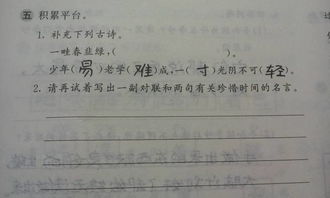 五 积累平台。
1. 补充下列古诗。
一畦春韭绿,( )。
少年(易)老学(难)成,一(寸)光阴不可(轻)。
2. 请再试着写出一副对联和两句有关珍惜时间的名言。